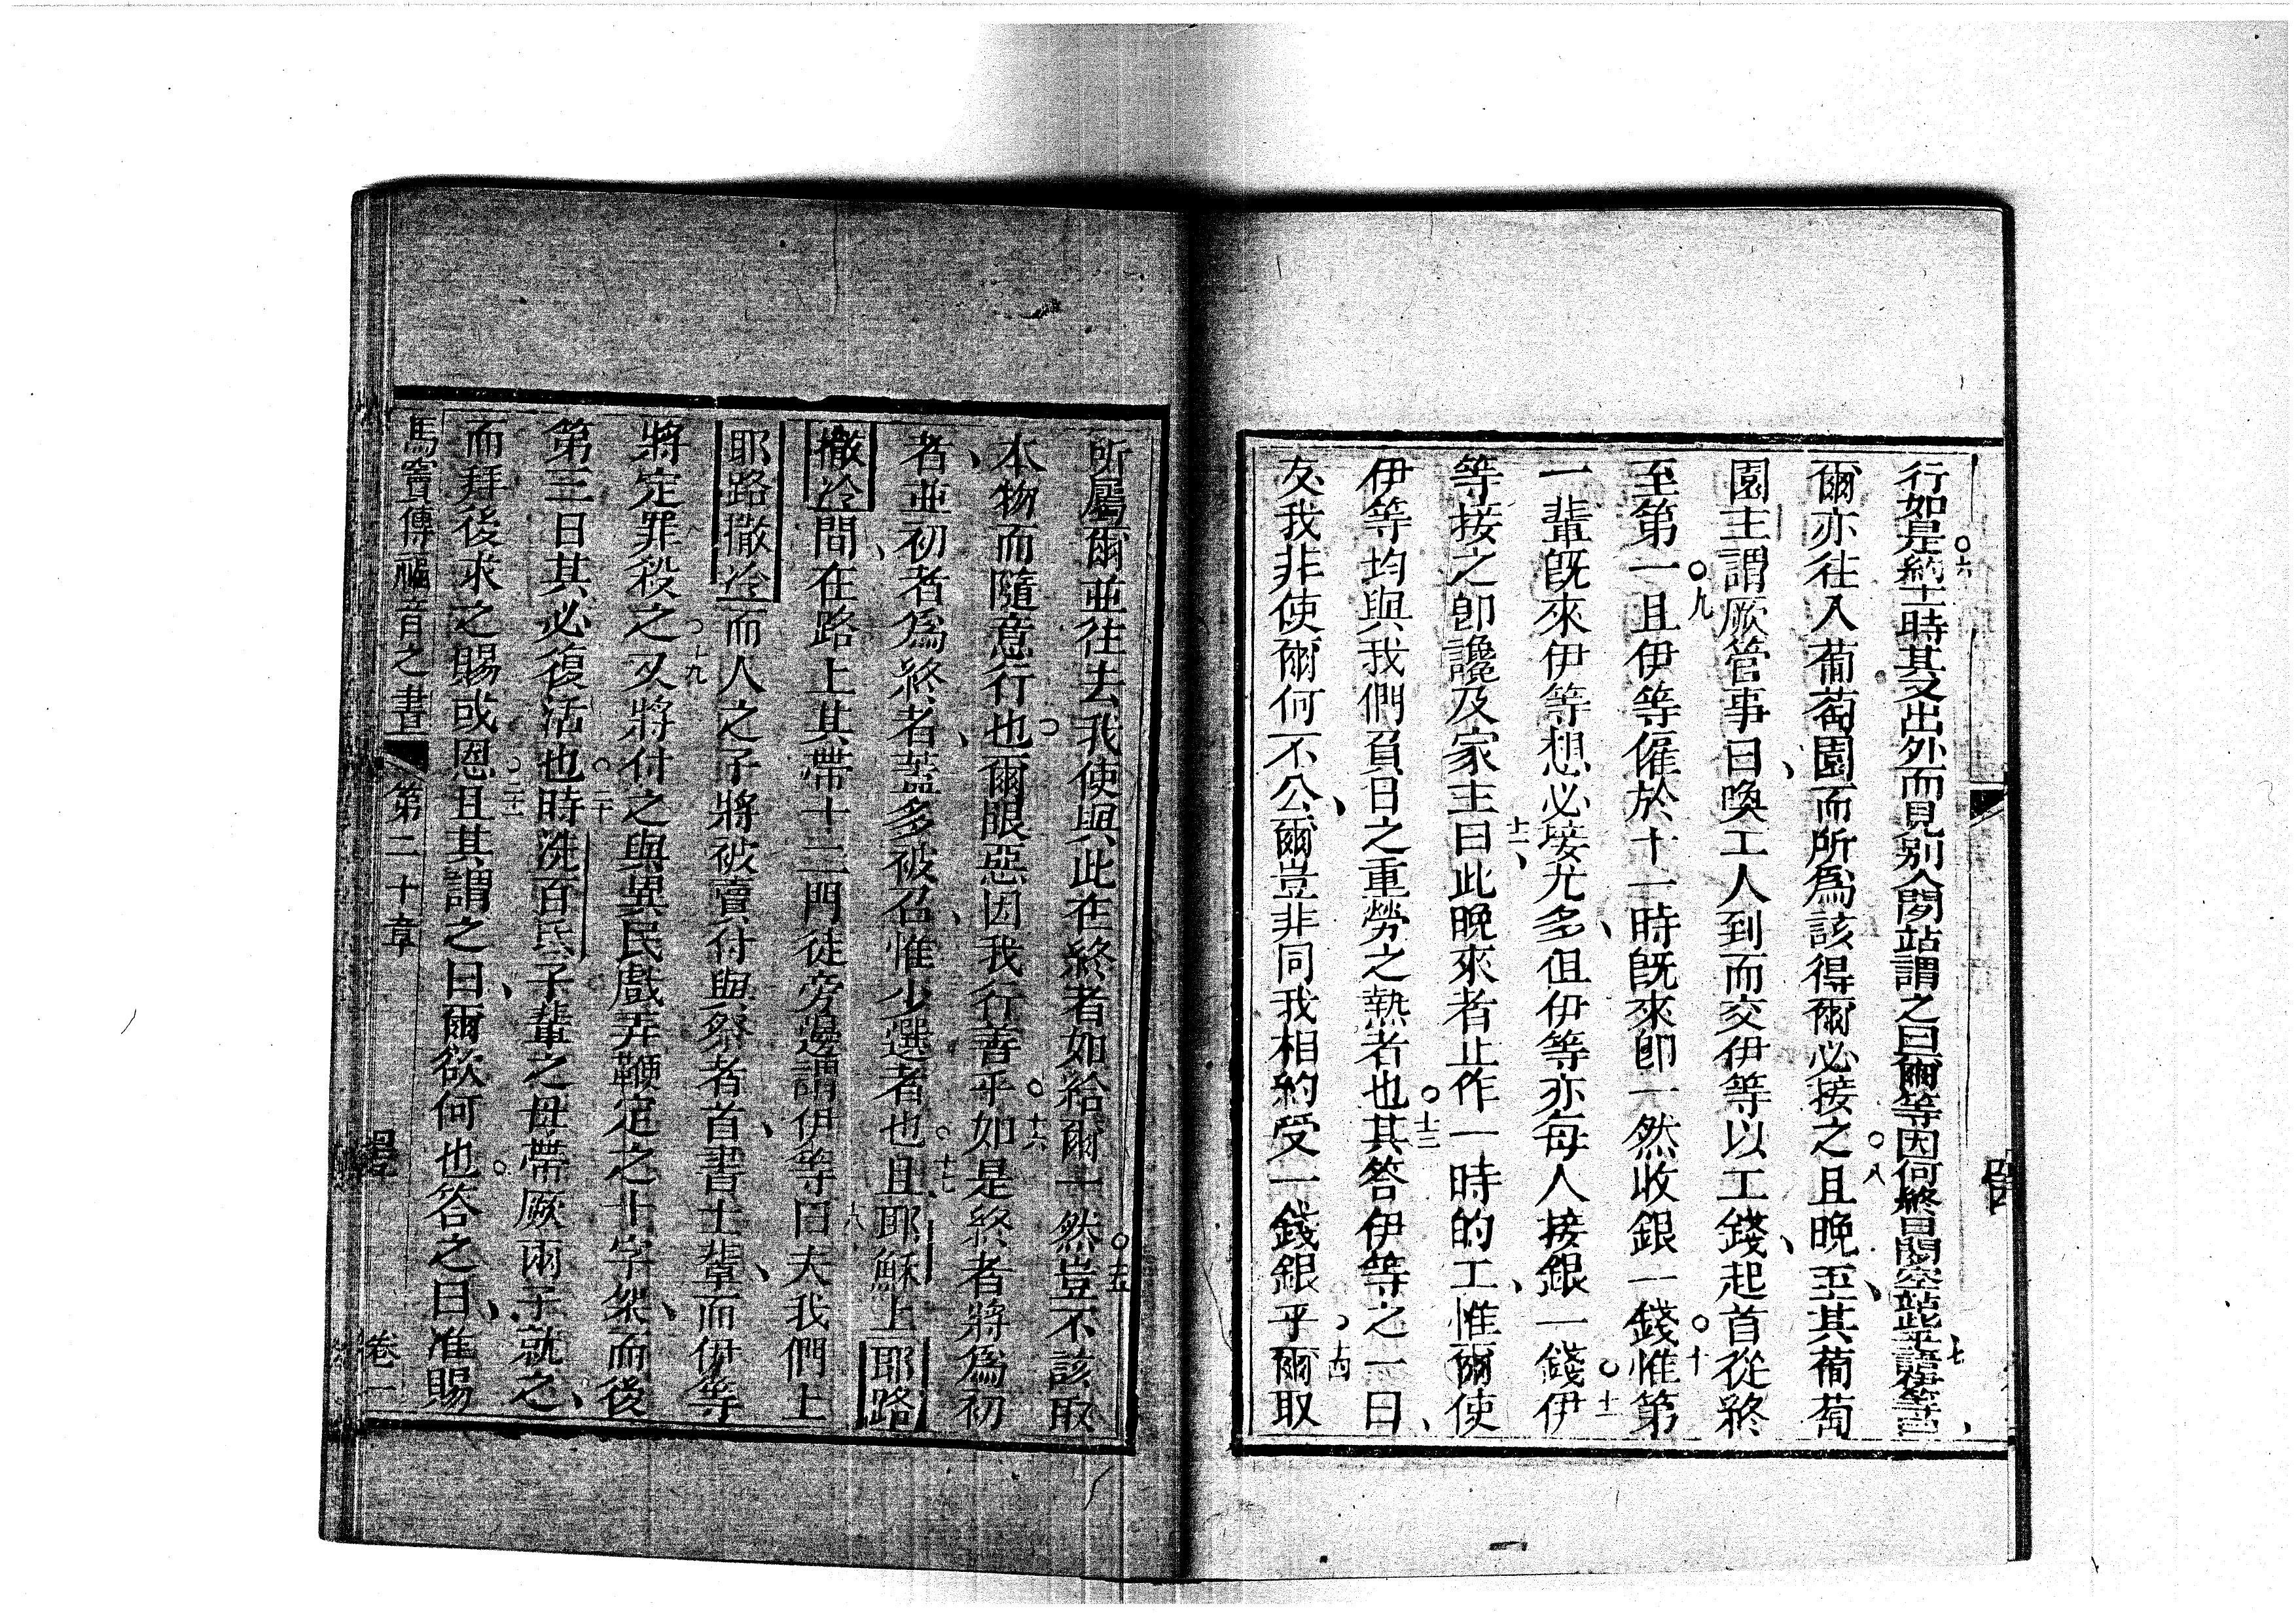 行如是約十一時其又出外而見別人閑站謂之曰爾等因何終日閑空站此乎七語答等
爾亦往入葡萄園而所為該得爾必接之○八且晚至其葡萄
園主謂厥管事曰喚工人到而交伊等以工錢起首從終
至第一○九且伊等僱於十一時既來即一然收銀一錢○十惟第
一輩既來伊等想必接尤多但伊等亦每人接銀一錢○十一伊
等接之即讒及家主曰十二此晚來者止作一時的工惟爾使
伊等均與我們負日之重勞之熱者也○十三其答伊等之一曰
友我非使爾何不公爾豈非同我相約受一錢銀乎十四爾取
所屬爾並往去我使與此在終者如給爾一然○十五豈不該取
本物而隨意行也爾眼惡因我行善乎○十六如是終者將為初
者並初者為終者蓋多被召惟少選者也○十七且耶穌上耶路
撒冷間在路上其帶十二門徒旁邊謂伊等曰十八夫我們上
耶路撒冷而人之子將被賣付與祭者首書士輩而伊等
將定罪殺之○十九又將付之與異民戲弄鞭定之十字架而後
第三日其必復活也○二十時洗百氏子輩之母帶厥兩子就之
而拜後求之賜或恩○二十一且其謂之曰爾欲何也答之曰准賜
馬竇傳福音之書 第二十章 卷一